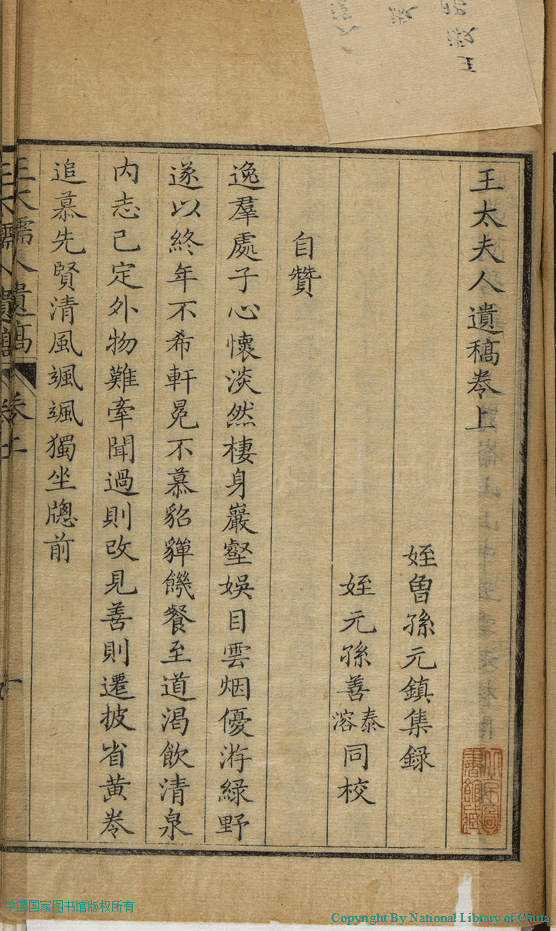 王太夫人遺稿卷上
姪曾孫元鎮集録
姪元孫善泰溶同校
自贊
逸羣處子心懷淡然棲身巖壑娛目雲烟優游綠野
遂以終年不希軒冕不慕貂蟬饑餐至道渴飲清泉
内志已定外物難牽聞過則改見善則遷披省黄卷
追慕先賢清風颯颯獨坐牕前
王太孺人遺稿
卷上
中国国家图书馆版权所有
Copyright By National Library of China